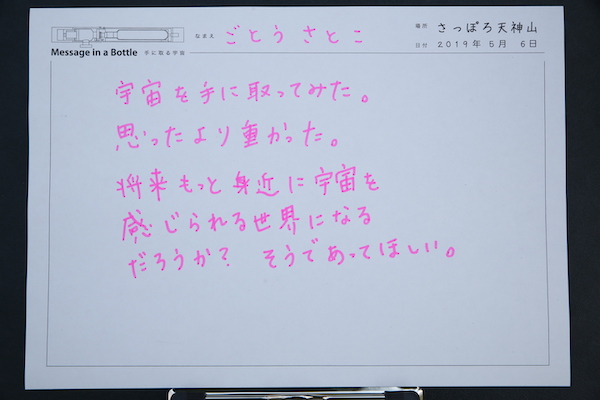 なまえ ごとう さとこ
場所 さっぽろ天神山
Message in a Bottle 手に取る宇宙
日付 2019年 5月 6日
宇宙を手に取ってみた。
思ったより重かった。
将来もっと身近に宇宙を
感じられる世界になる
だろうか? そうであってほしい。